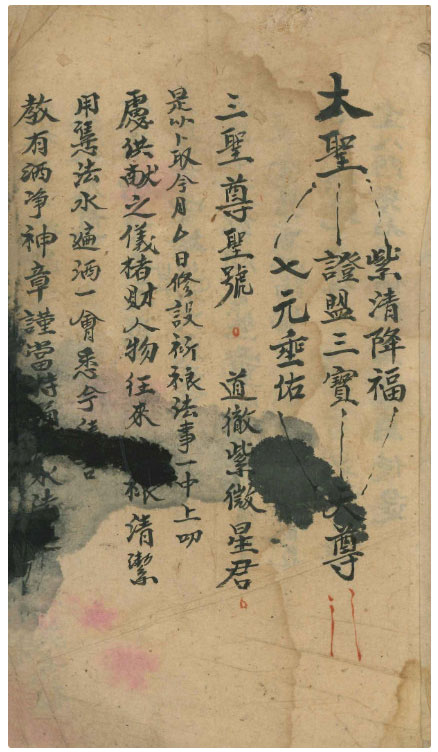 太聖
紫清降福
證盟三寶
七元垂佑
天尊
三聖尊聖號 道徹紫微星君
是以卜取今月厶日修設祈禳法事一中上叩
慮供献之儀楮財人物徃来根清潔
用憑法水遍洒一會悉令
教有洒净神章謹當持誦